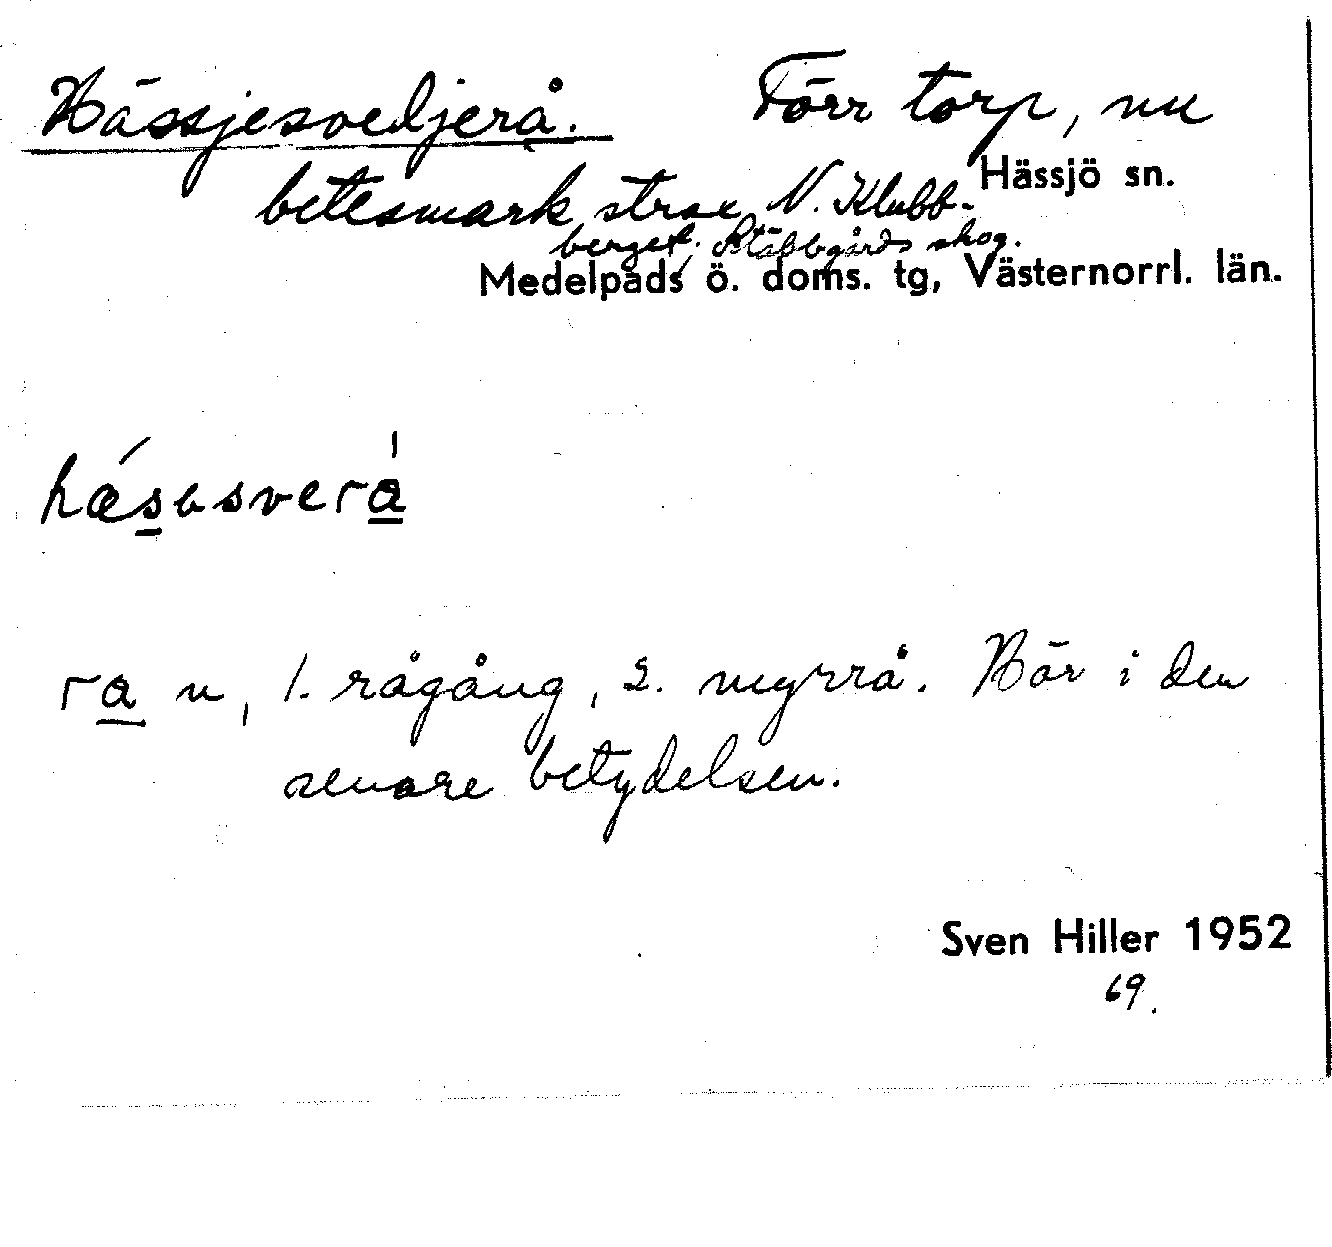 Hässjesvedjerå. Förr torp, nu
betesmark strax N. Klubb-
Hässjö sn.
berget, Stäbbgårds skog.
Medelpads ö. doms. tg, Västernorrl. län.
ra n, 1. rågång, 2. myrrå. Här i den
senare betydelsen.
Sven Hiller 1952
69.